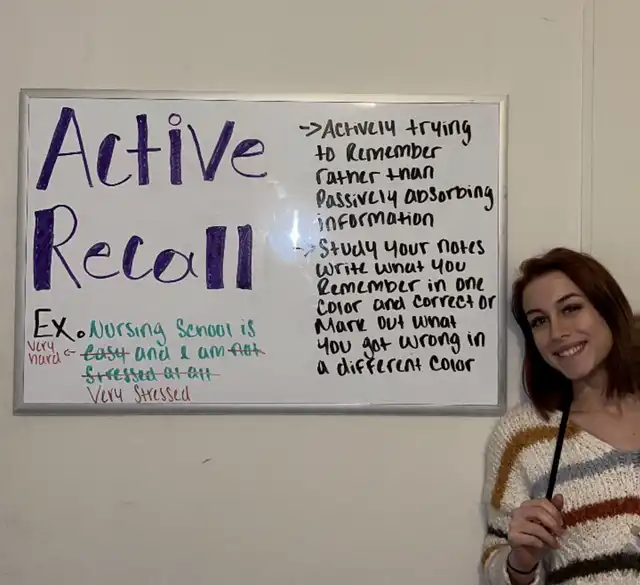 Active
Recall
Ex. Nursing School is
easy and I am not
stressed at all
Very
hard ←
Very Stressed
-> Actively trying
to Remember
rather than
Passively absorbing
information
-> Study your notes
write what you
Remember in one
color and correct or
Mark out what
you got wrong in
a different color